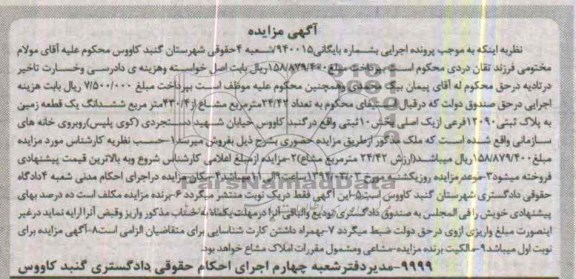 آگهی مزایده
نظریه اینکه به موجب پرونده اجرایی بشماره بایگانی ۷۹۴۰۰۱۵شعبه ۴حقوقی شهرستان گنبد کاووس محکوم علیه آقای مولام
مختومی فرزند تقان دردی محکوم است به پرداخت مبلغ ۱۵۸/۸۷۹/۴۰۰ریال بابت اصل خواسته وهزینه ی دادرسی وخسارت تاخیر
درتادیه درحق محکوم له آقای پیمان بیک محمدی وهمچنین محکوم علیه موظف است بپرداخت مبلغ ۷/۵۰۰/۰۰۰ ریال بابت هزینه
اجرایی درحق صندوق دولت که درقبال بدهی های محکوم به تعداد ۲۴/۴۲مترمربع مشاع از۴۳۰/۴متر مربع ششدانگ یک قطعه زمین
به پلاک ثبتی ۱۲۰۹۰فرعی ازیک اصلی بخش ۱۰ثبتی واقع درگنبد کاووس خیابان شهید دستجردی (کوی پلیس)روبروی خانه های
سازمانی واقع شده است که ملک مذکور ازطریق مزایده حضوری بشرح ذیل بفروش میرسد۱-حسب نظریه کارشناس مورد مزایده
مبلغ ۱۵۸/۸۷۹/۴۰۰ریال میباشد(ارزش ۲۴/۴۲ مترمربع مشاع)۲-مزایده ازمبلغ اعلامی کارشناس شروع وبه بالاترین قیمت پیشنهادی
فروخته میشود۳-موعدمزایده روزیکشنبه مورخ ساعت ۱۰الی ۱۱میباشد۴-مکان مزایده دراجرای احکام مدنی شعبه ۴دادگاه
حقوقی دادگستری شهرستان گنبد کاووس است۵-این آگهی فقط دریک نوبت منتشر میگردد ۶-برنده مزایده مکلف است ده درصد بهای
پیشنهادی خویش را فی المجلس به صندوق دادگستری تودیع والباقی آنرا درمهلت یکماه به حساب مذکور واریز وقبض آنرا ارایه نماید درغیر
اینصورت مبلغ واریزی ازوی درحق دولت ضبط میگردد ۷-بهمراه داشتن کارت شناسایی برای متقاضیان الزامی است۸-آگهی مزایده برای
نوبت اول میباشد۹-مالکیت برنده مزایده-مشاعی ومشمول مقررات املاک مشاع خواهد بود.
۹۹۹۹-مدیردفترشعبه چهارم اجرای احکام حقوقی دادگستری گنبد کاووس
ParsNamadData